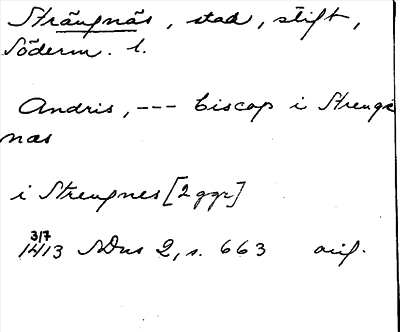 Strängnäs, stad, stift,
Söderm. l.
Andris, --- biscop i Strenge
nas
i Strengnes [2 ggr]
3/7
1413 SDns 2, s. 663 orig.